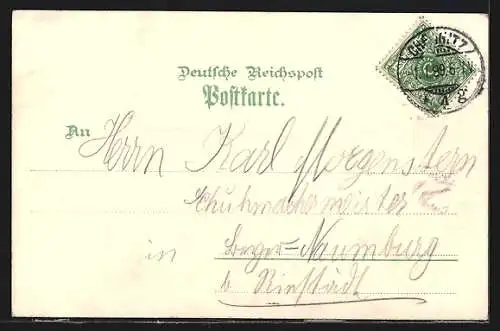 CHEMNITZ
Deutsche Reichspost
Postkarte.
An Herrn Karl Morgenstern
Schuhmachermeister
in Beyer=Naumburg
b Riestädt